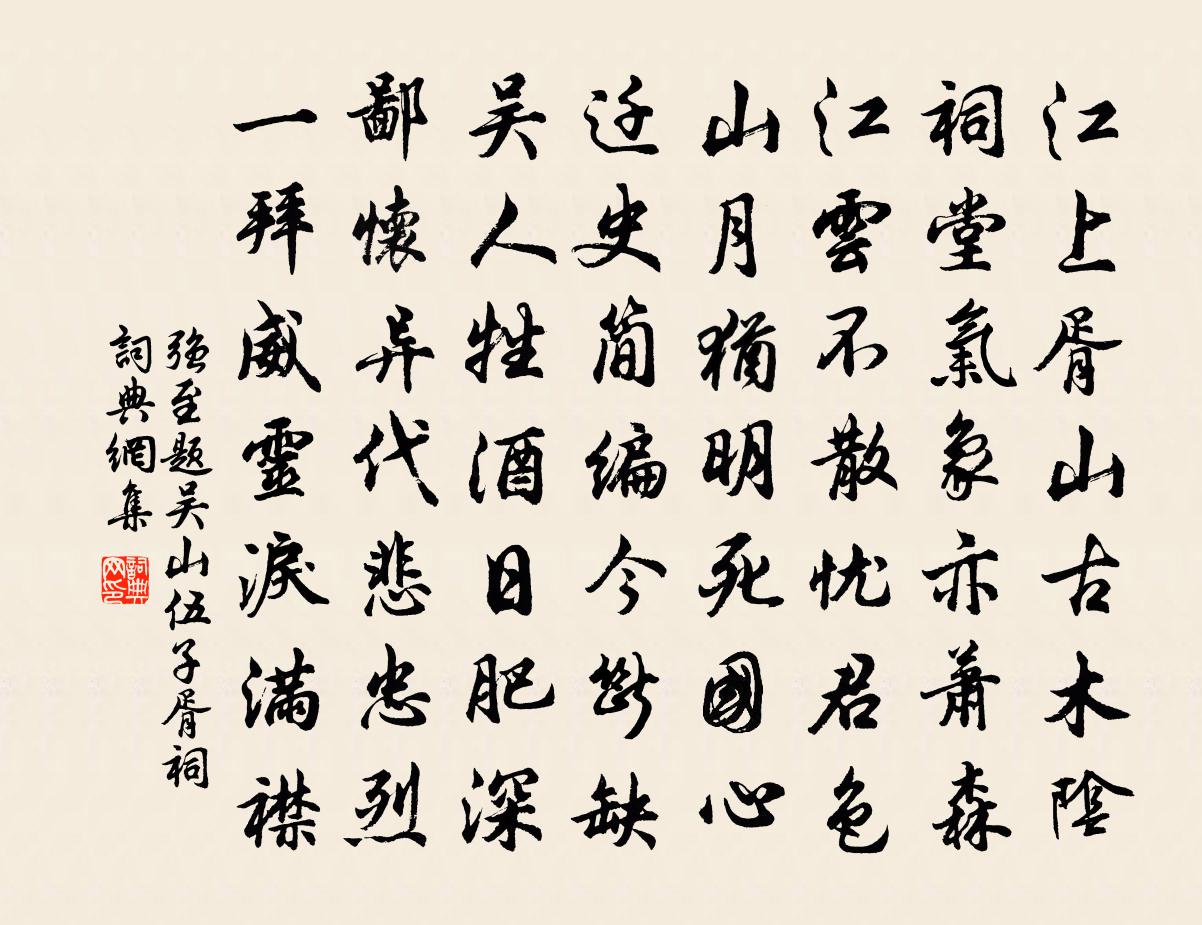 江上胥山古木陰
祠堂氣象亦蕭森
江雲不散忧君色
山月猶明死國心
迁史简编今斷缺
吴人牲酒日肥深
鄙懷异代悲忠烈
一拜威靈淚满襟
强至题吴山伍子胥祠
詞典網集
詞典网印